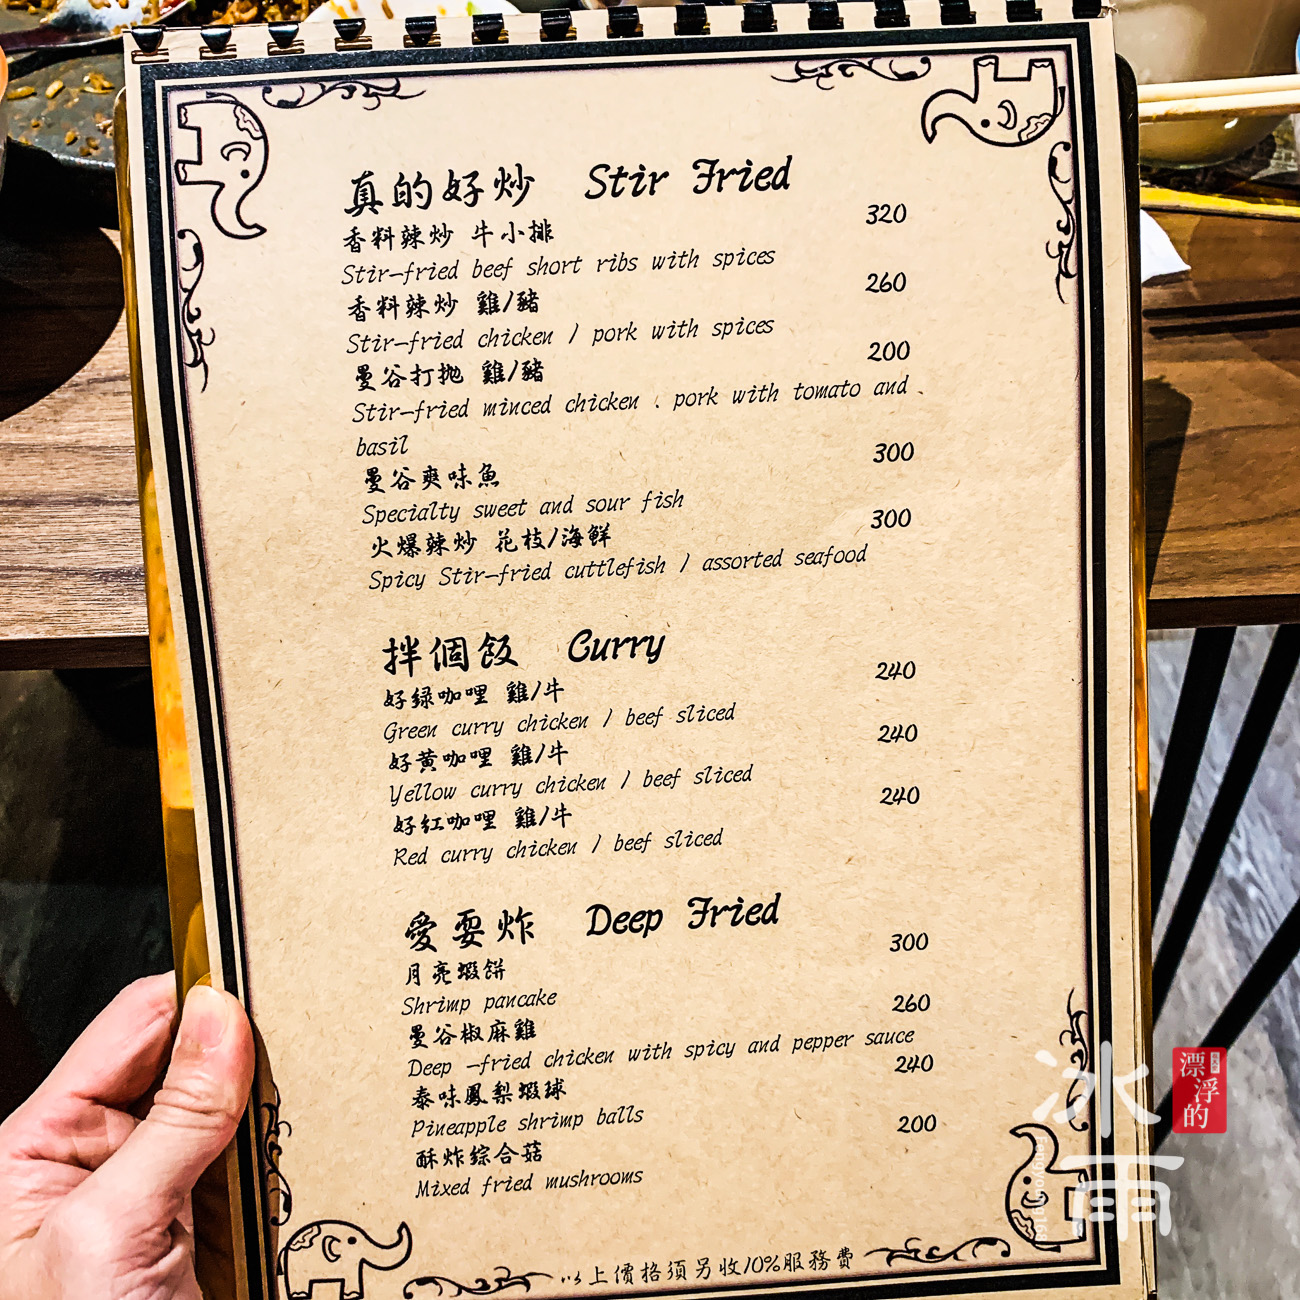 真的好炒 Stir Fried
香料辣炒 牛小排 320
Stir-fried beef short ribs with spices
香料辣炒 雞/豬 260
Stir-fried chicken / pork with spices
曼谷打拋 雞/豬 200
Stir-fried minced chicken . pork with tomato and
basil
曼谷爽味魚 300
Specialty sweet and sour fish
火爆辣炒 花枝/海鮮 300
Spicy Stir-fried cuttlefish / assorted seafood
拌個飯 Curry
好綠咖哩 雞/牛 240
Green curry chicken / beef sliced
好黃咖哩 雞/牛 240
Yellow curry chicken / beef sliced
好紅咖哩 雞/牛 240
Red curry chicken / beef sliced
愛耍炸 Deep Fried
月亮蝦餅 300
Shrimp pancake
曼谷椒麻雞 260
Deep -fried chicken with spicy and pepper sauce
泰味鳳梨蝦球 240
Pineapple shrimp balls
酥炸綜合菇 200
Mixed fried mushrooms
以上價格須另收10%服務費
漂浮的
冰雨